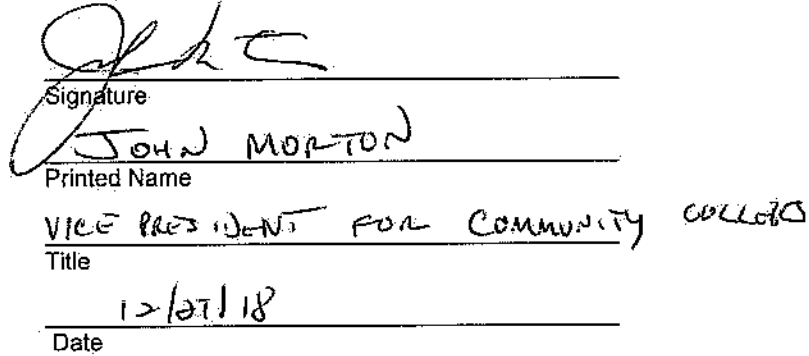 Signature
JOHN MORTON
Printed Name
VICE PRESIDENT FOR COMMUNITY COLLEGES
Title
12/27/18
Date